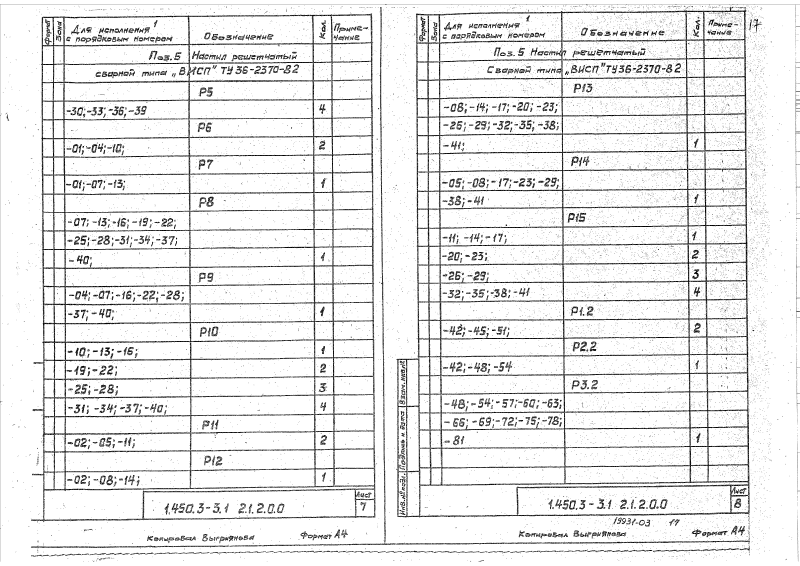 Формат
Зона
Для исполнения 1
с порядковым номером
Обозначение
Кол.
Приме-
чание
Поз.5 Настил решетчатый
сварной типа „ВИСП" ТУ36-2370-82
Р5
-30;-33;-36;-39 4
Р6
-01;-04;-10; 2
Р7
-01;-07;-13; 1
Р8
-07;-13;-16;-19;-22;
-25;-28;-31;-34;-37;
-40; 1
Р9
-04;-07;-16;-22;-28;
-37;-40; 1
Р10
-10;-13;-16; 1
-19;-22; 2
-25;-28; 3
-31;-34;-37;-40; 4
Р11
-02;-05;-11; 2
Р12
-02;-08;-14; 1
1.450.3-3.1 2.1.2.0.0
Лист
7
Копировал Выгриянова Формат А4
17
Формат
Зона
Для исполнения 1
с порядковым номером
Обозначение
Кол.
Приме-
чание
Поз.5 Настил решетчатый
Сварной типа „ВИСП" ТУ36-2370-82
Р13
-08;-14;-17;-20;-23;
-26;-29;-32;-35;-38;
-41; 1
Р14
-05;-08;-17;-23;-29;
-38;-41 1
Р15
-11;-14;-17; 1
-20;-23; 2
-26;-29; 3
-32;-35;-38;-41 4
Р1.2
-42;-45;-51; 2
Р2.2
-42;-48;-54 1
Р3.2
-48;-54;-57;-60;-63;
-66;-69;-72;-75;-78;
-81 1
Инв.№подл. Подпись и дата Взам.инв№
1.450.3-3.1 2.1.2.0.0
Лист
8
15931-03 17
Копировал Выгриянова Формат А4